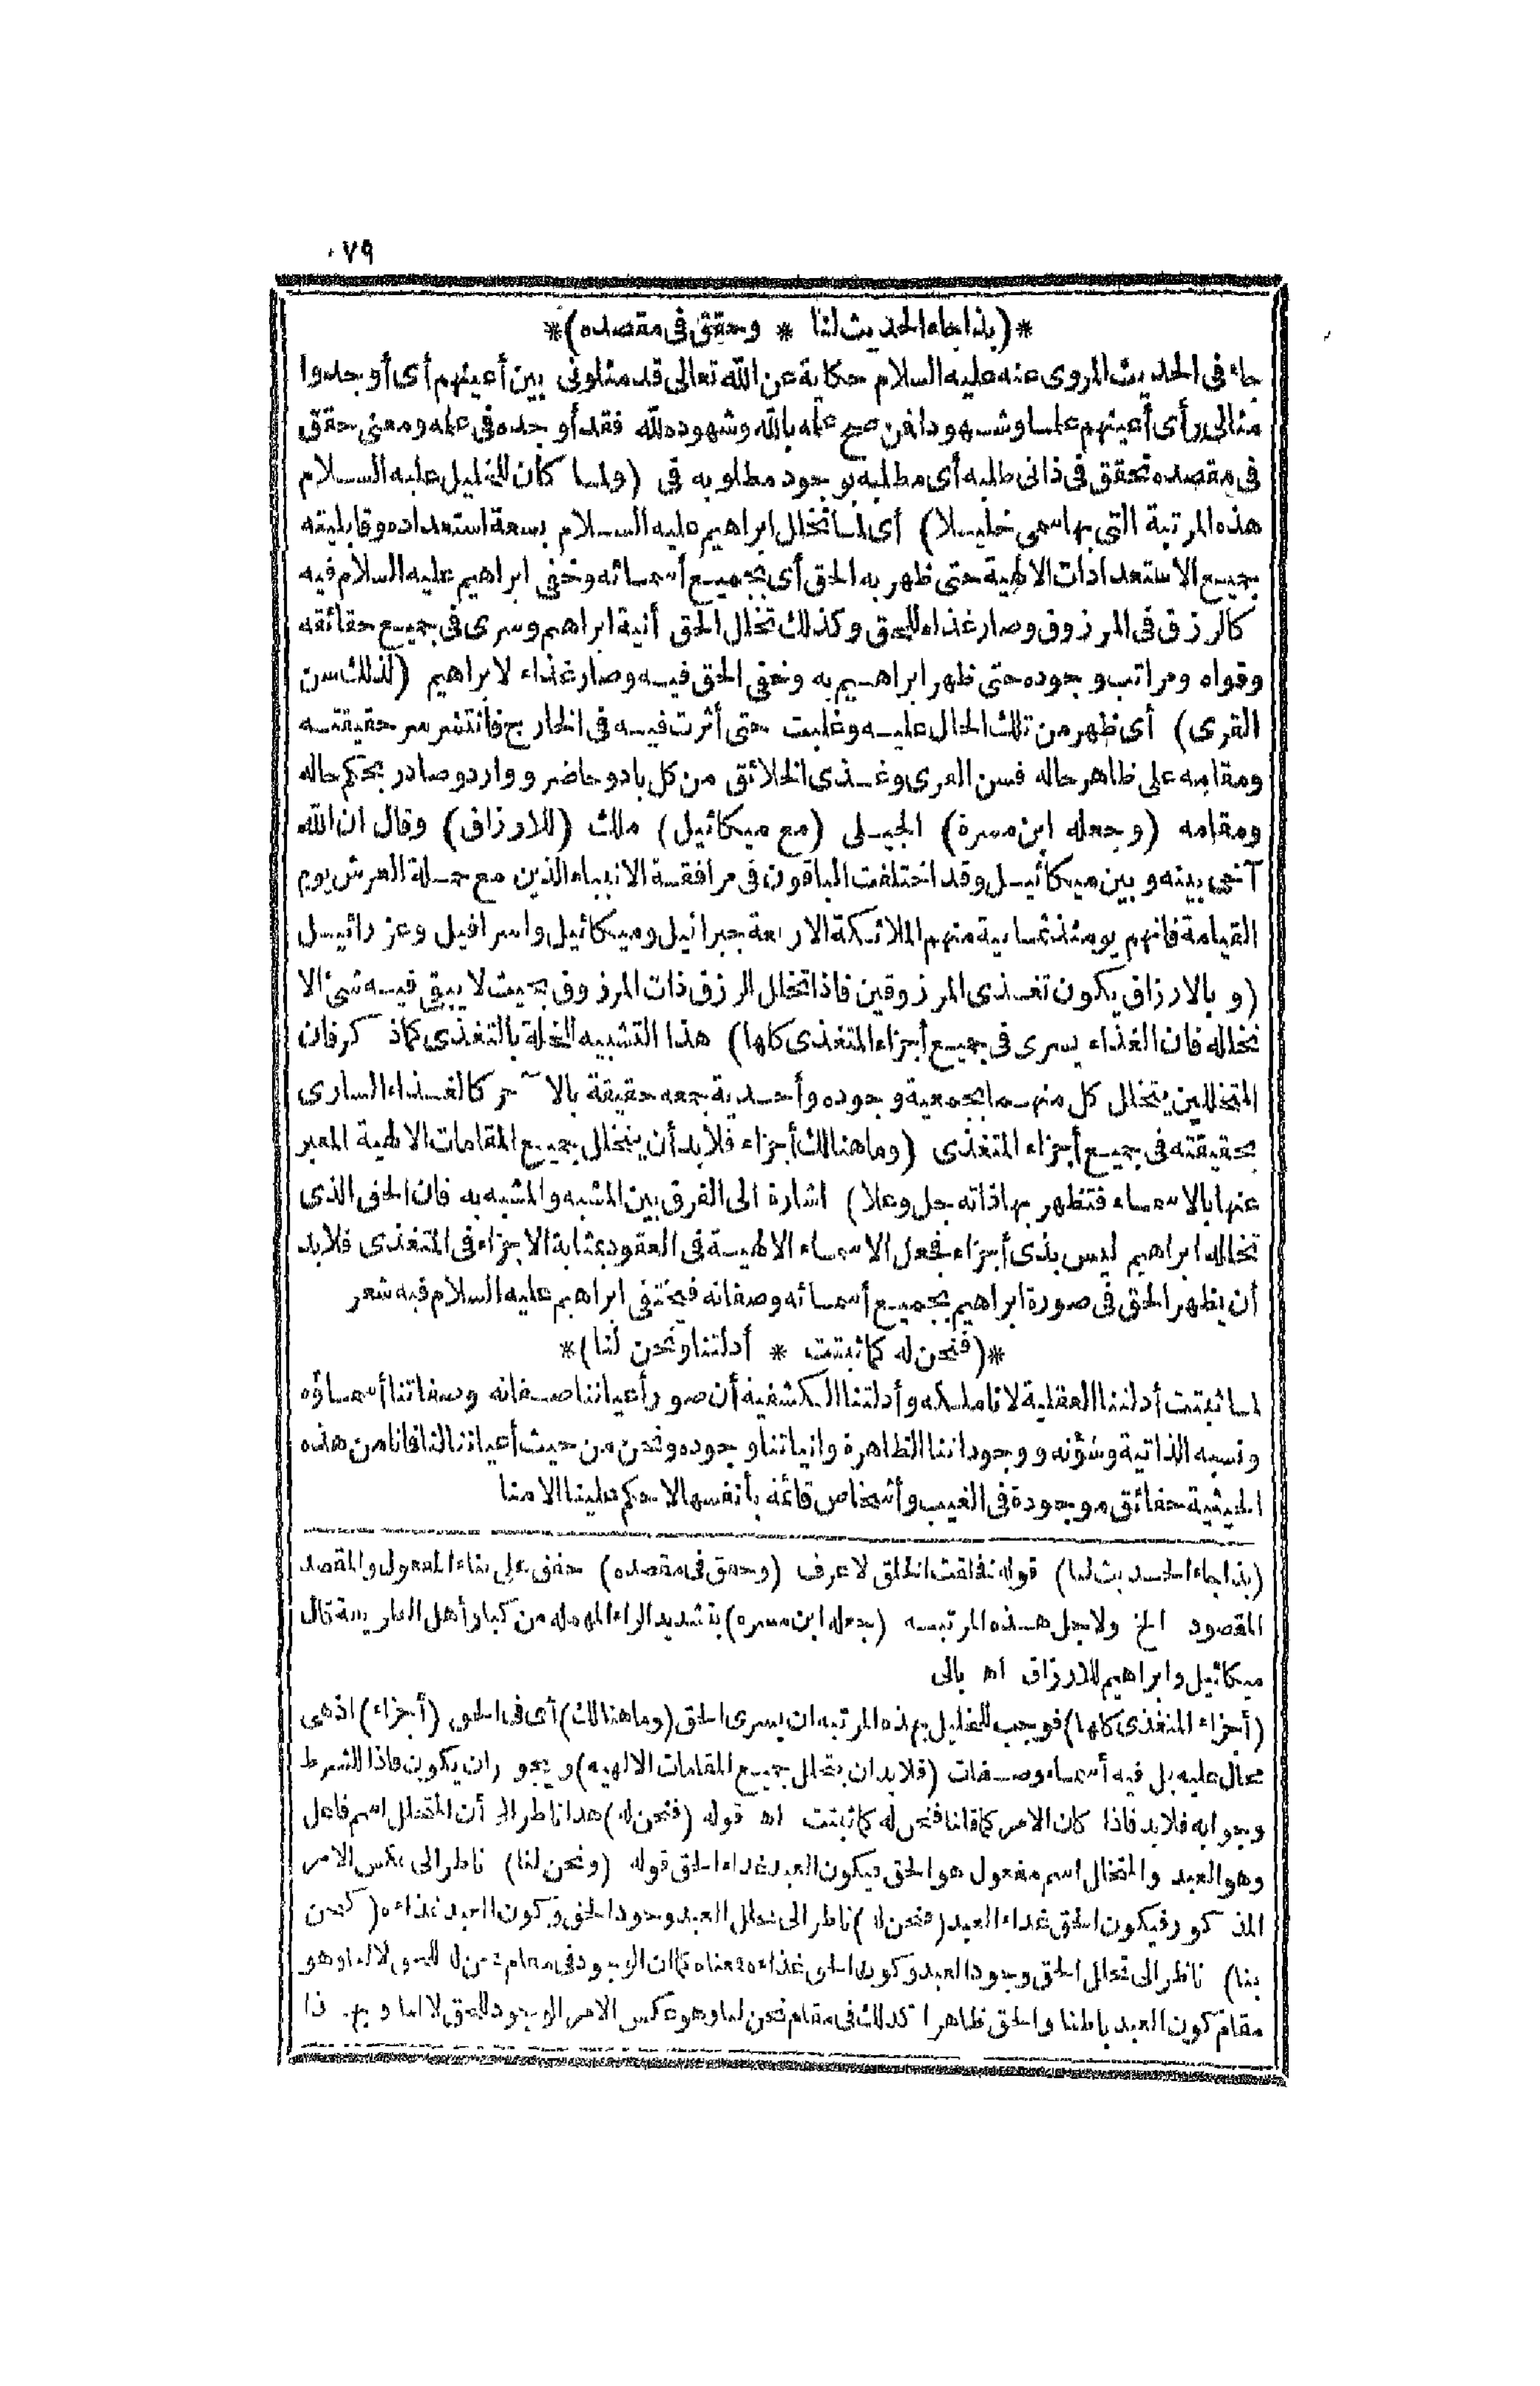 ٧٩
*(بذا جاء الحديث لنا * وحقق فى مقصده)*
جاء فى الحديث المروى عنه عليه السلام حكاية عن الله تعالى قد مثلونى بين أعينهم أى أوجدوا
مثالى رأى أعينهم علما وشهودا فن صح علمه بالله وشهوده لله فقد أوجده فى علمه ومعنى حقق
فى مقصده تحقق فى ذاتى طلبه أى مطلبه بوجود مطلوبه فى (ولما كان للخليل عليه السلام
هذه المرتبة التى بها سمى خليلا) أى لما تخلل ابراهيم عليه السلام بسعة استعداده وقابليته
جميع الاستعدادات الالهية حتى ظهر به الحق أى بجميع أسمائه وخفى ابراهيم عليه السلام فيه
كالرزق فى المرزوق وصار غذاء للحق وكذلك تخلل الحق أنية ابراهيم وسرى فى جميع حقائقه
وقواه ومراتب وجوده حتى ظهر ابراهيم به وخفى الحق فيه وصار غذاء لابراهيم (لذلك سن
القرى) أى ظهر من تلك الحال عليه وغلبت حتى أثرت فيه فى الخارج فانتشر سر حقيقته
ومقامه على ظاهر حاله فسن القرى وغذى الخلائق من كل باد وحاضر ووارد وصادر بحكم حاله
ومقامه (وجعله ابن مسرة) الجبلى (مع ميكائيل) ملك (للارزاق) وقال ان الله
آخى بينه وبين ميكائيل وقد اختلفت الباقون فى مرافقة الانبياء الذين مع حملة العرش يوم
القيامة فانهم يومئذ ثمانية منهم الملائكة الاربعة جبرائيل وميكائيل واسرافيل وعزرائيل
(وبالارزاق يكون تغذى المرزوقين فاذا تخلل الرزق ذات المرزوق بحيث لا يبقى فيه شئ الا
تخلله فان الغذاء يسرى فى جميع أجزاء المتغذى كلها) هذا التشبيه للخلة بالتغذى كما ذكر فان
المتخللين يتخلل كل منهما بجمعية وجوده وأحدية جمعه حقيقة بالآخر كالغذاء السارى
بحقيقته فى جميع أجزاء المتغذى (وما هنالك أجزاء فلا بد أن يتخلل جميع المقامات الالهية المعبر
عنها بالاسماء فتظهر بها ذاته جل وعلا) اشارة الى الفرق بين المشبه والمشبه به فان الحق الذى
تخلله ابراهيم ليس بذى أجزاء فجعل الاسماء الالهية فى العقود بمثابة الاجزاء فى المتغذى فلا بد
أن يظهر الحق فى صورة ابراهيم بجميع أسمائه وصفاته فيختفى ابراهيم عليه السلام فيه شعر
*(فنحن له كما ثبتت * أدلتنا ونحن لنا)*
لما ثبتت أدلتنا العقلية لانا ملكه وأدلتنا الكشفية أن صور أعياننا صفاته وصفاتنا أسماؤه
ونسبه الذاتية وشؤنه ووجوداتنا الظاهرة وانياتنا وجوده ونحن من حيث أعياننا لنا فانا من هذه
الحيثية حقائق موجودة فى الغيب وأشخاص قائمة بأنفسها لا حكم علينا الا منا
(بذا جاء الحديث لنا) قوله خلقت الخلق لاعرف (وحقق فى مقصده) حقق على بناء المفعول والمقصد
المقصود الخ ولاجل هذه المرتبة (جعله ابن مسره) بتشديد الراء المهملة من كبار أهل الطريقة قال
ميكائيل وابراهيم للارزاق اه بالى
(أجزاء المتغذى كلها) فوجب للخليل بهذه المرتبه ان يسرى الحق (وما هنالك) أى فى الحق (أجزاء) اذ هى
محال عليه بل فيه أسماء وصفات (فلا بد ان يتخلل جميع المقامات الالهيه) ويجوز ان يكون فاذا للشرط
وجوابه فلا بد فاذا كان الامر كما قلنا فنحن له كما ثبتت اه قوله (فنحن له) هذا ناظر الى أن المتخلل اسم فاعل
وهو العبد والمتخلل اسم مفعول هو الحق فيكون العبد غذاء الحق قوله (ونحن لنا) ناظر الى عكس الامر
المذكور فيكون الحق غذاء العبد (فنحن له) ناظر الى تخلل العبد وجود الحق وكون العبد غذاءه (كنحن
بنا) ناظر الى تخلل الحق وجود العبد وكون الحق غذاءه معناه كما ان الوجود فى مقام نحن له للحق لا لنا وهو
مقام كون العبد باطنا والحق ظاهرا كذلك فى مقام نحن لنا وهو عكس الامر الوجود للحق لا لنا